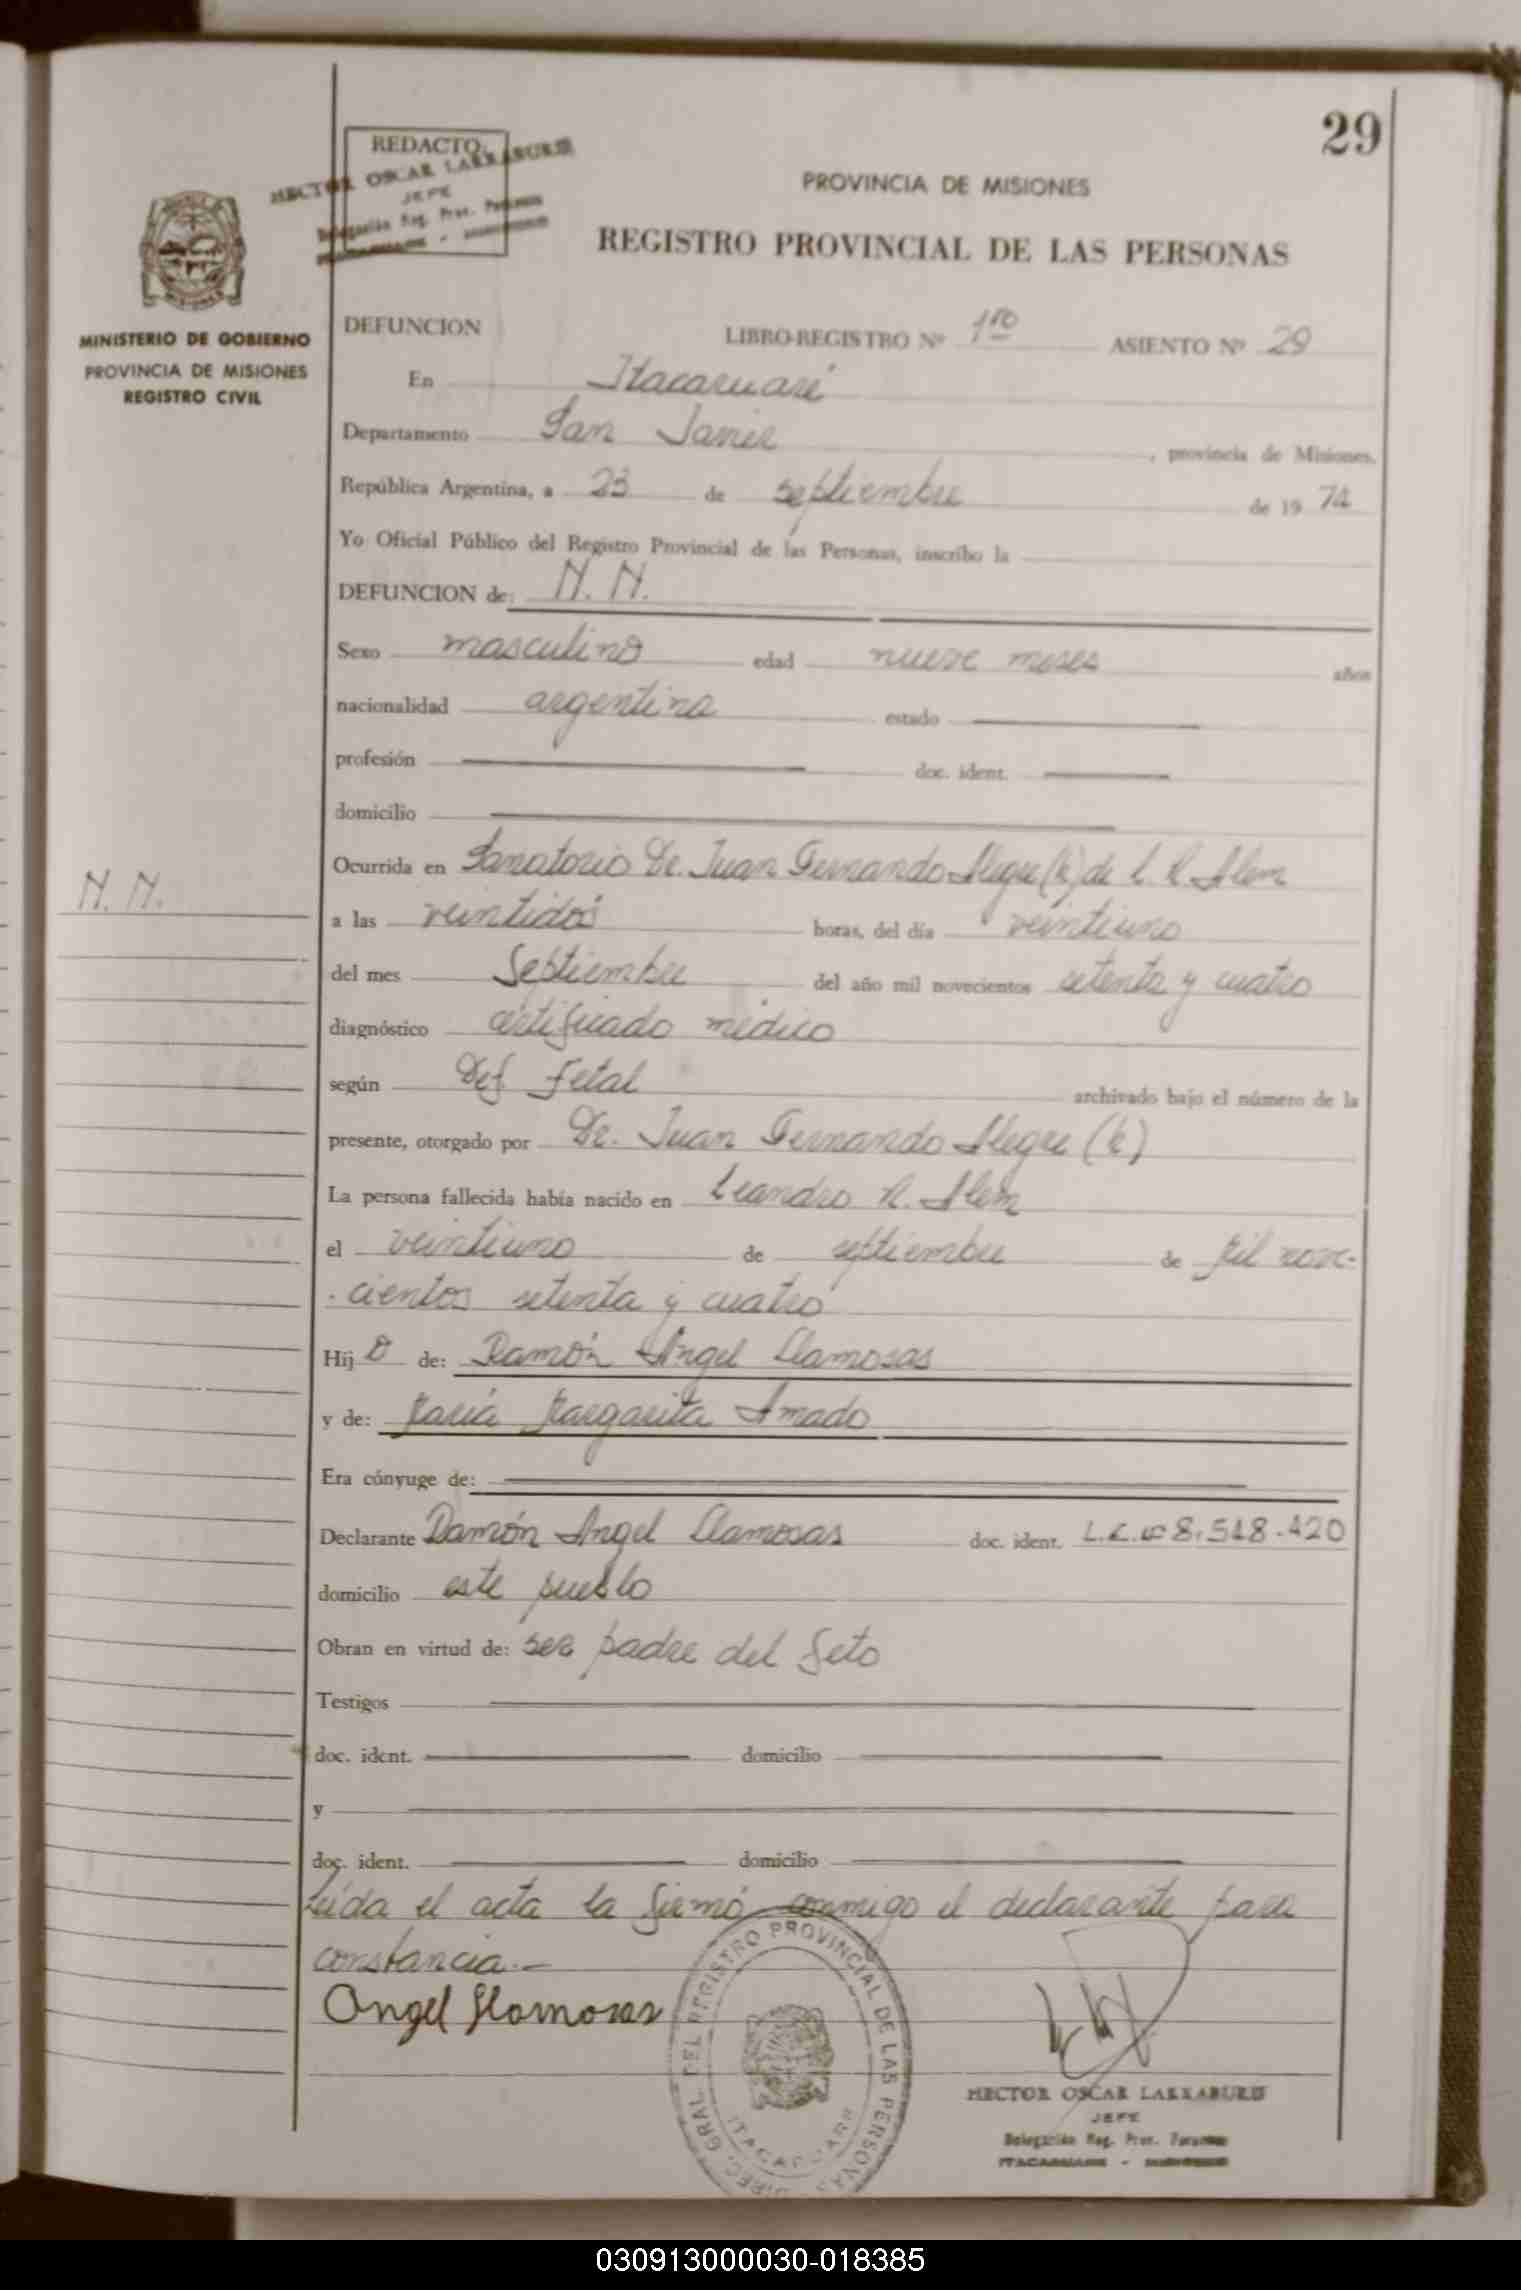 29
REDACTO
HECTOR OSCAR LARRABURE
JEFE
Delegación Reg. Prov. Personas
PROVINCIA DE MISIONES
REGISTRO PROVINCIAL DE LAS PERSONAS
MINISTERIO DE GOBIERNO
PROVINCIA DE MISIONES
REGISTRO CIVIL
DEFUNCION LIBRO-REGISTRO Nº 1ro ASIENTO Nº 29
En Itacaruaré
Departamento San Javier, provincia de Misiones,
República Argentina, a 23 de septiembre de 1974
Yo Oficial Público del Registro Provincial de las Personas, inscribo la
DEFUNCION de: N. N.
Sexo masculino edad nueve meses años
nacionalidad argentina estado
profesión doc. ident.
domicilio
Ocurrida en Sanatorio Dr. Juan Fernando Alegre (h) de L. N. Alem
N. N.
a las veintidós horas, del día veintiuno
del mes Septiembre del año mil novecientos setenta y cuatro
diagnóstico certificado médico
según Def. Fetal archivado bajo el número de la
presente, otorgado por Dr. Juan Fernando Alegre (h)
La persona fallecida había nacido en Leandro N. Alem
el veintiuno de septiembre de Mil nove-
cientos setenta y cuatro
Hijo de: Ramón Angel Llamosas
y de: María Margarita Amado
Era cónyuge de:
Declarante Ramón Angel Llamosas doc. ident. L.E. nº 8.518.420
domicilio este pueblo
Obran en virtud de: ser padre del feto
Testigos
doc. ident. domicilio
y
doc. ident. domicilio
Leída el acta la firmó conmigo el declarante para
constancia.-
Angel Llamosas
DIREC. GRAL. DEL REGISTRO PROVINCIAL DE LAS PERSONAS
ITACARUARE
HECTOR OSCAR LARRABURE
JEFE
Delegación Reg. Prov. Personas
ITACARUARE - MISIONES
030913000030-018385